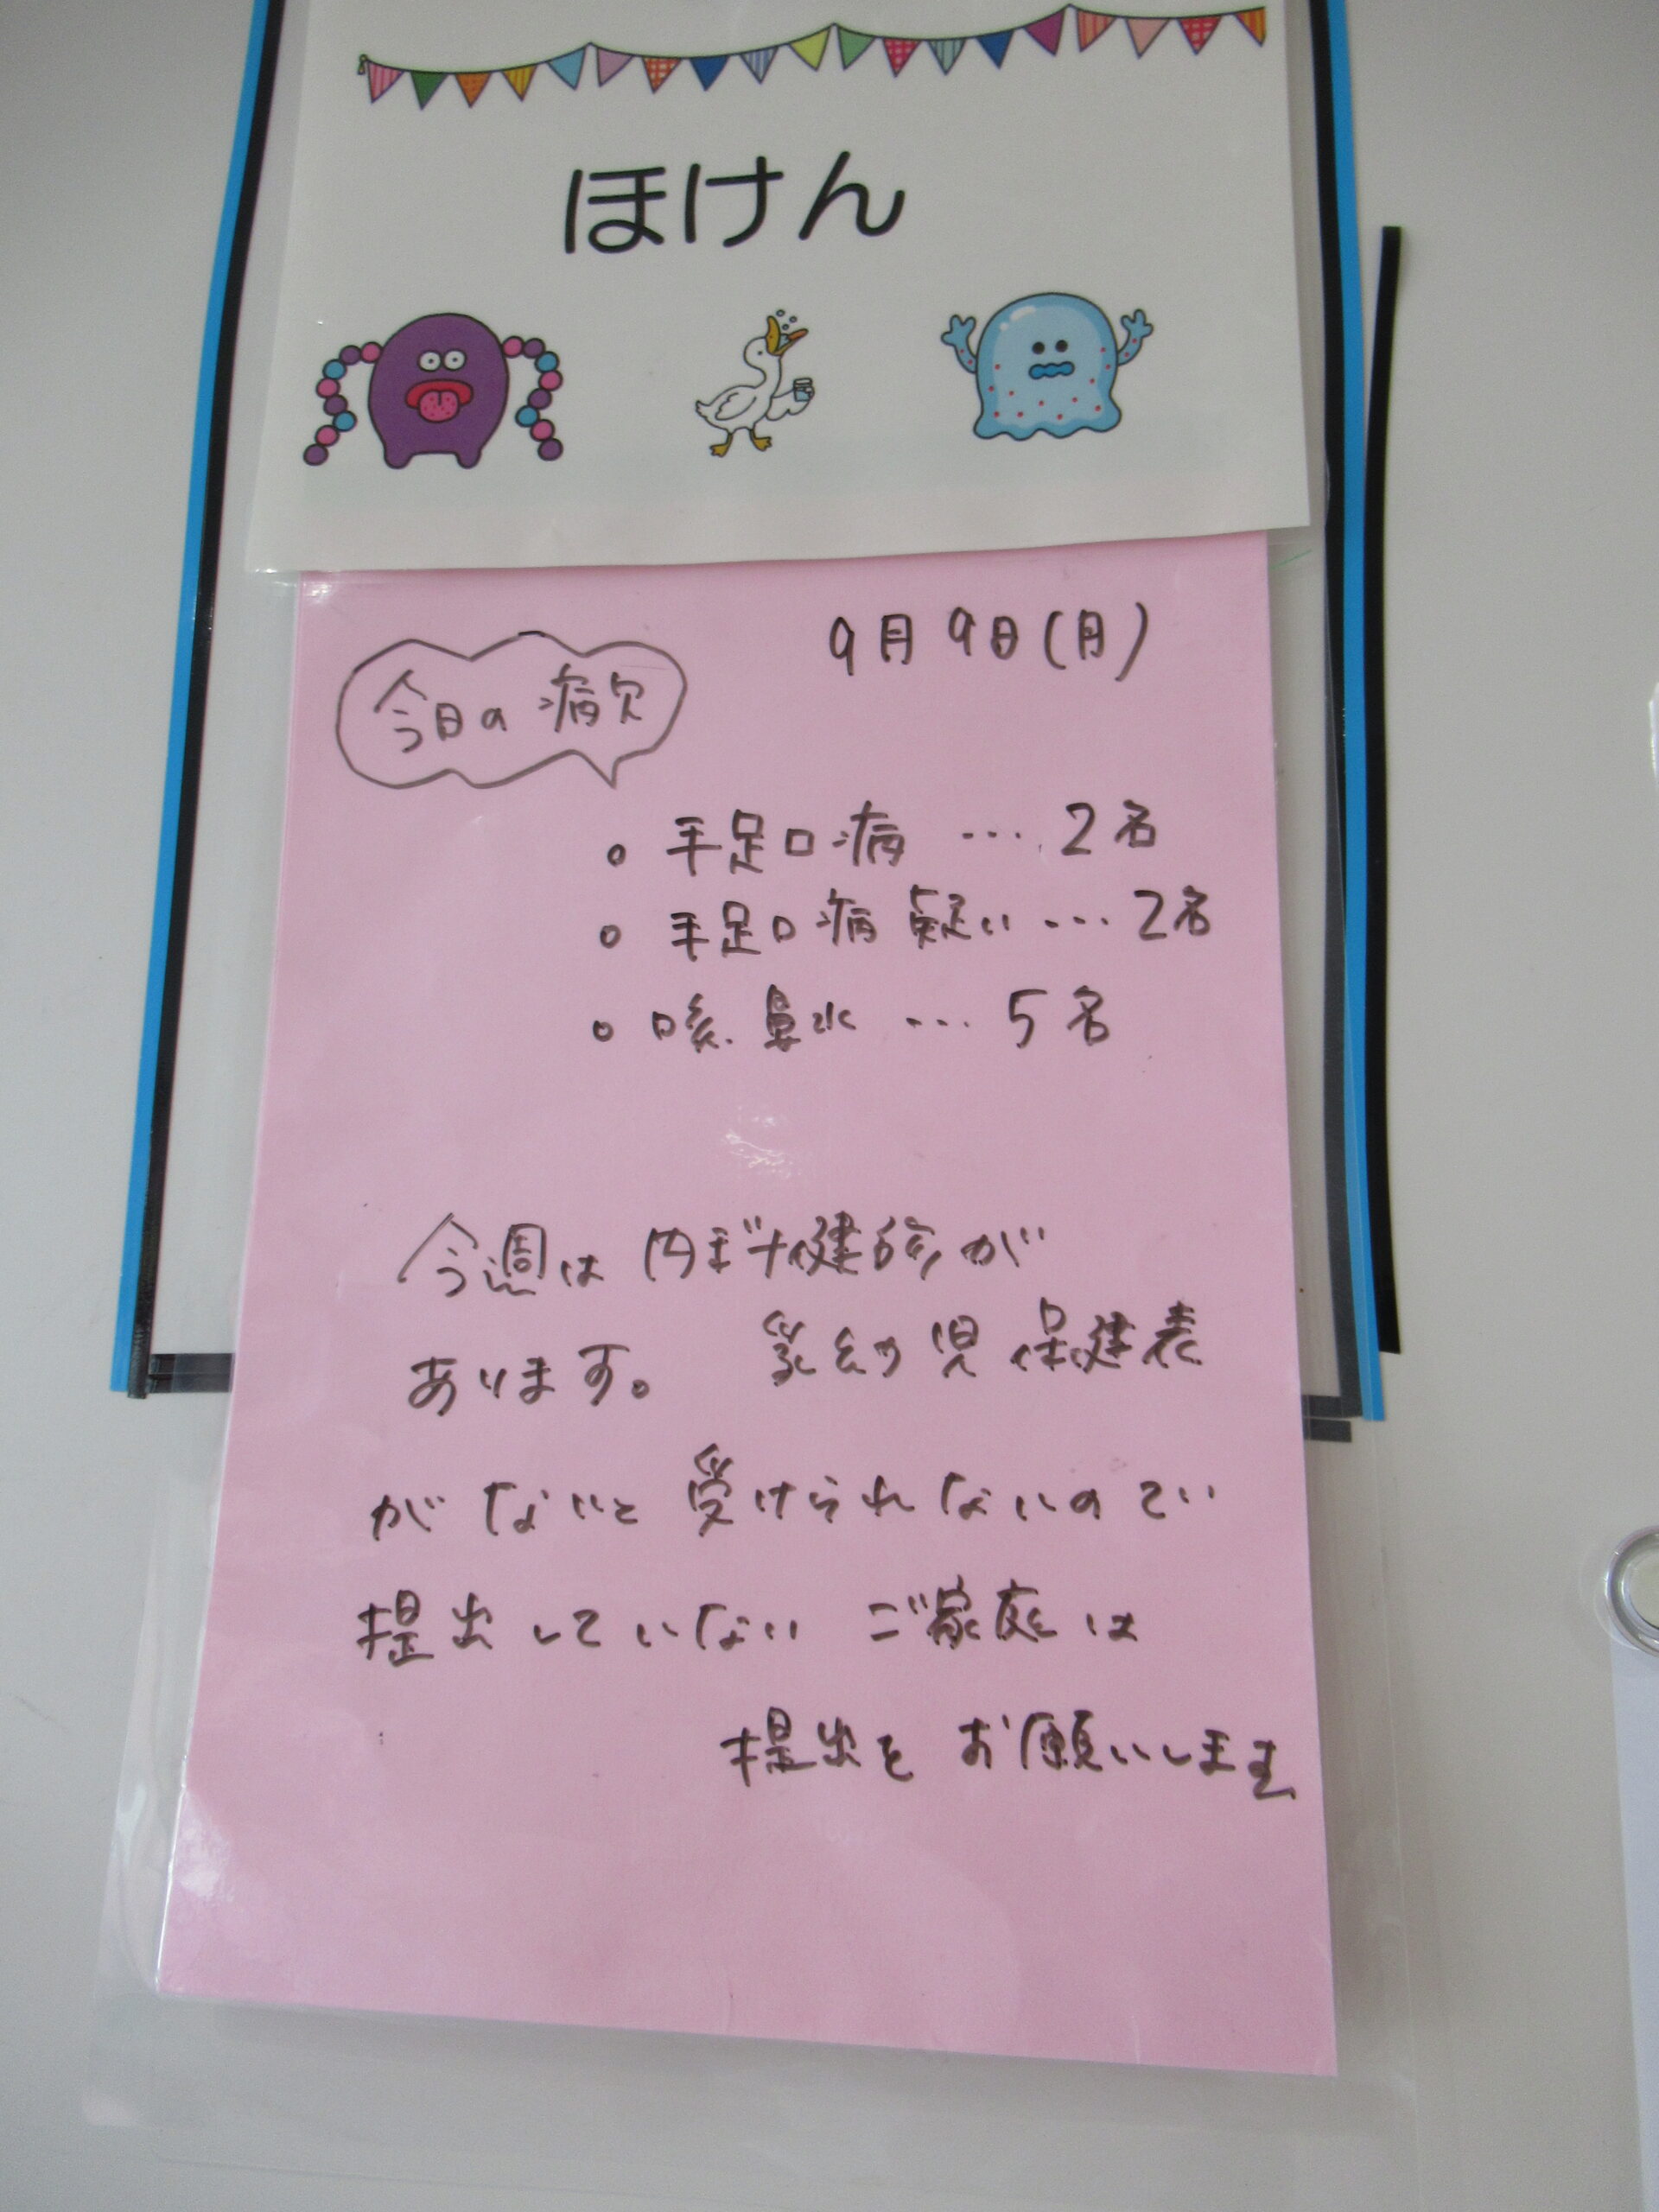 ほけん
9月9日(月)
今日の病欠
○ 手足口病 … 2名
○ 手足口病疑い … 2名
○ 咳.鼻水 … 5名
今週は 内科健診が
あります。 乳幼児保健表
がないと受けられないので
提出していない ご家庭は
提出をお願いします